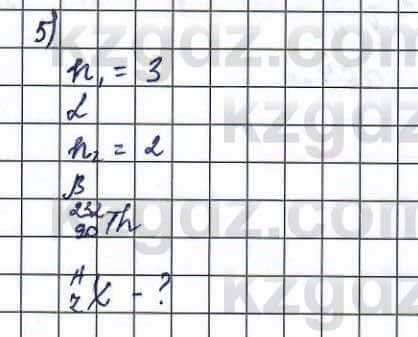 5)
n₁ = 3
α
n₂ = 2
β
²³²₉₀Th
ᴬ_Z X - ?
kzgdz.com
kzgdz.com
kzgdz.com
kzgdz.com